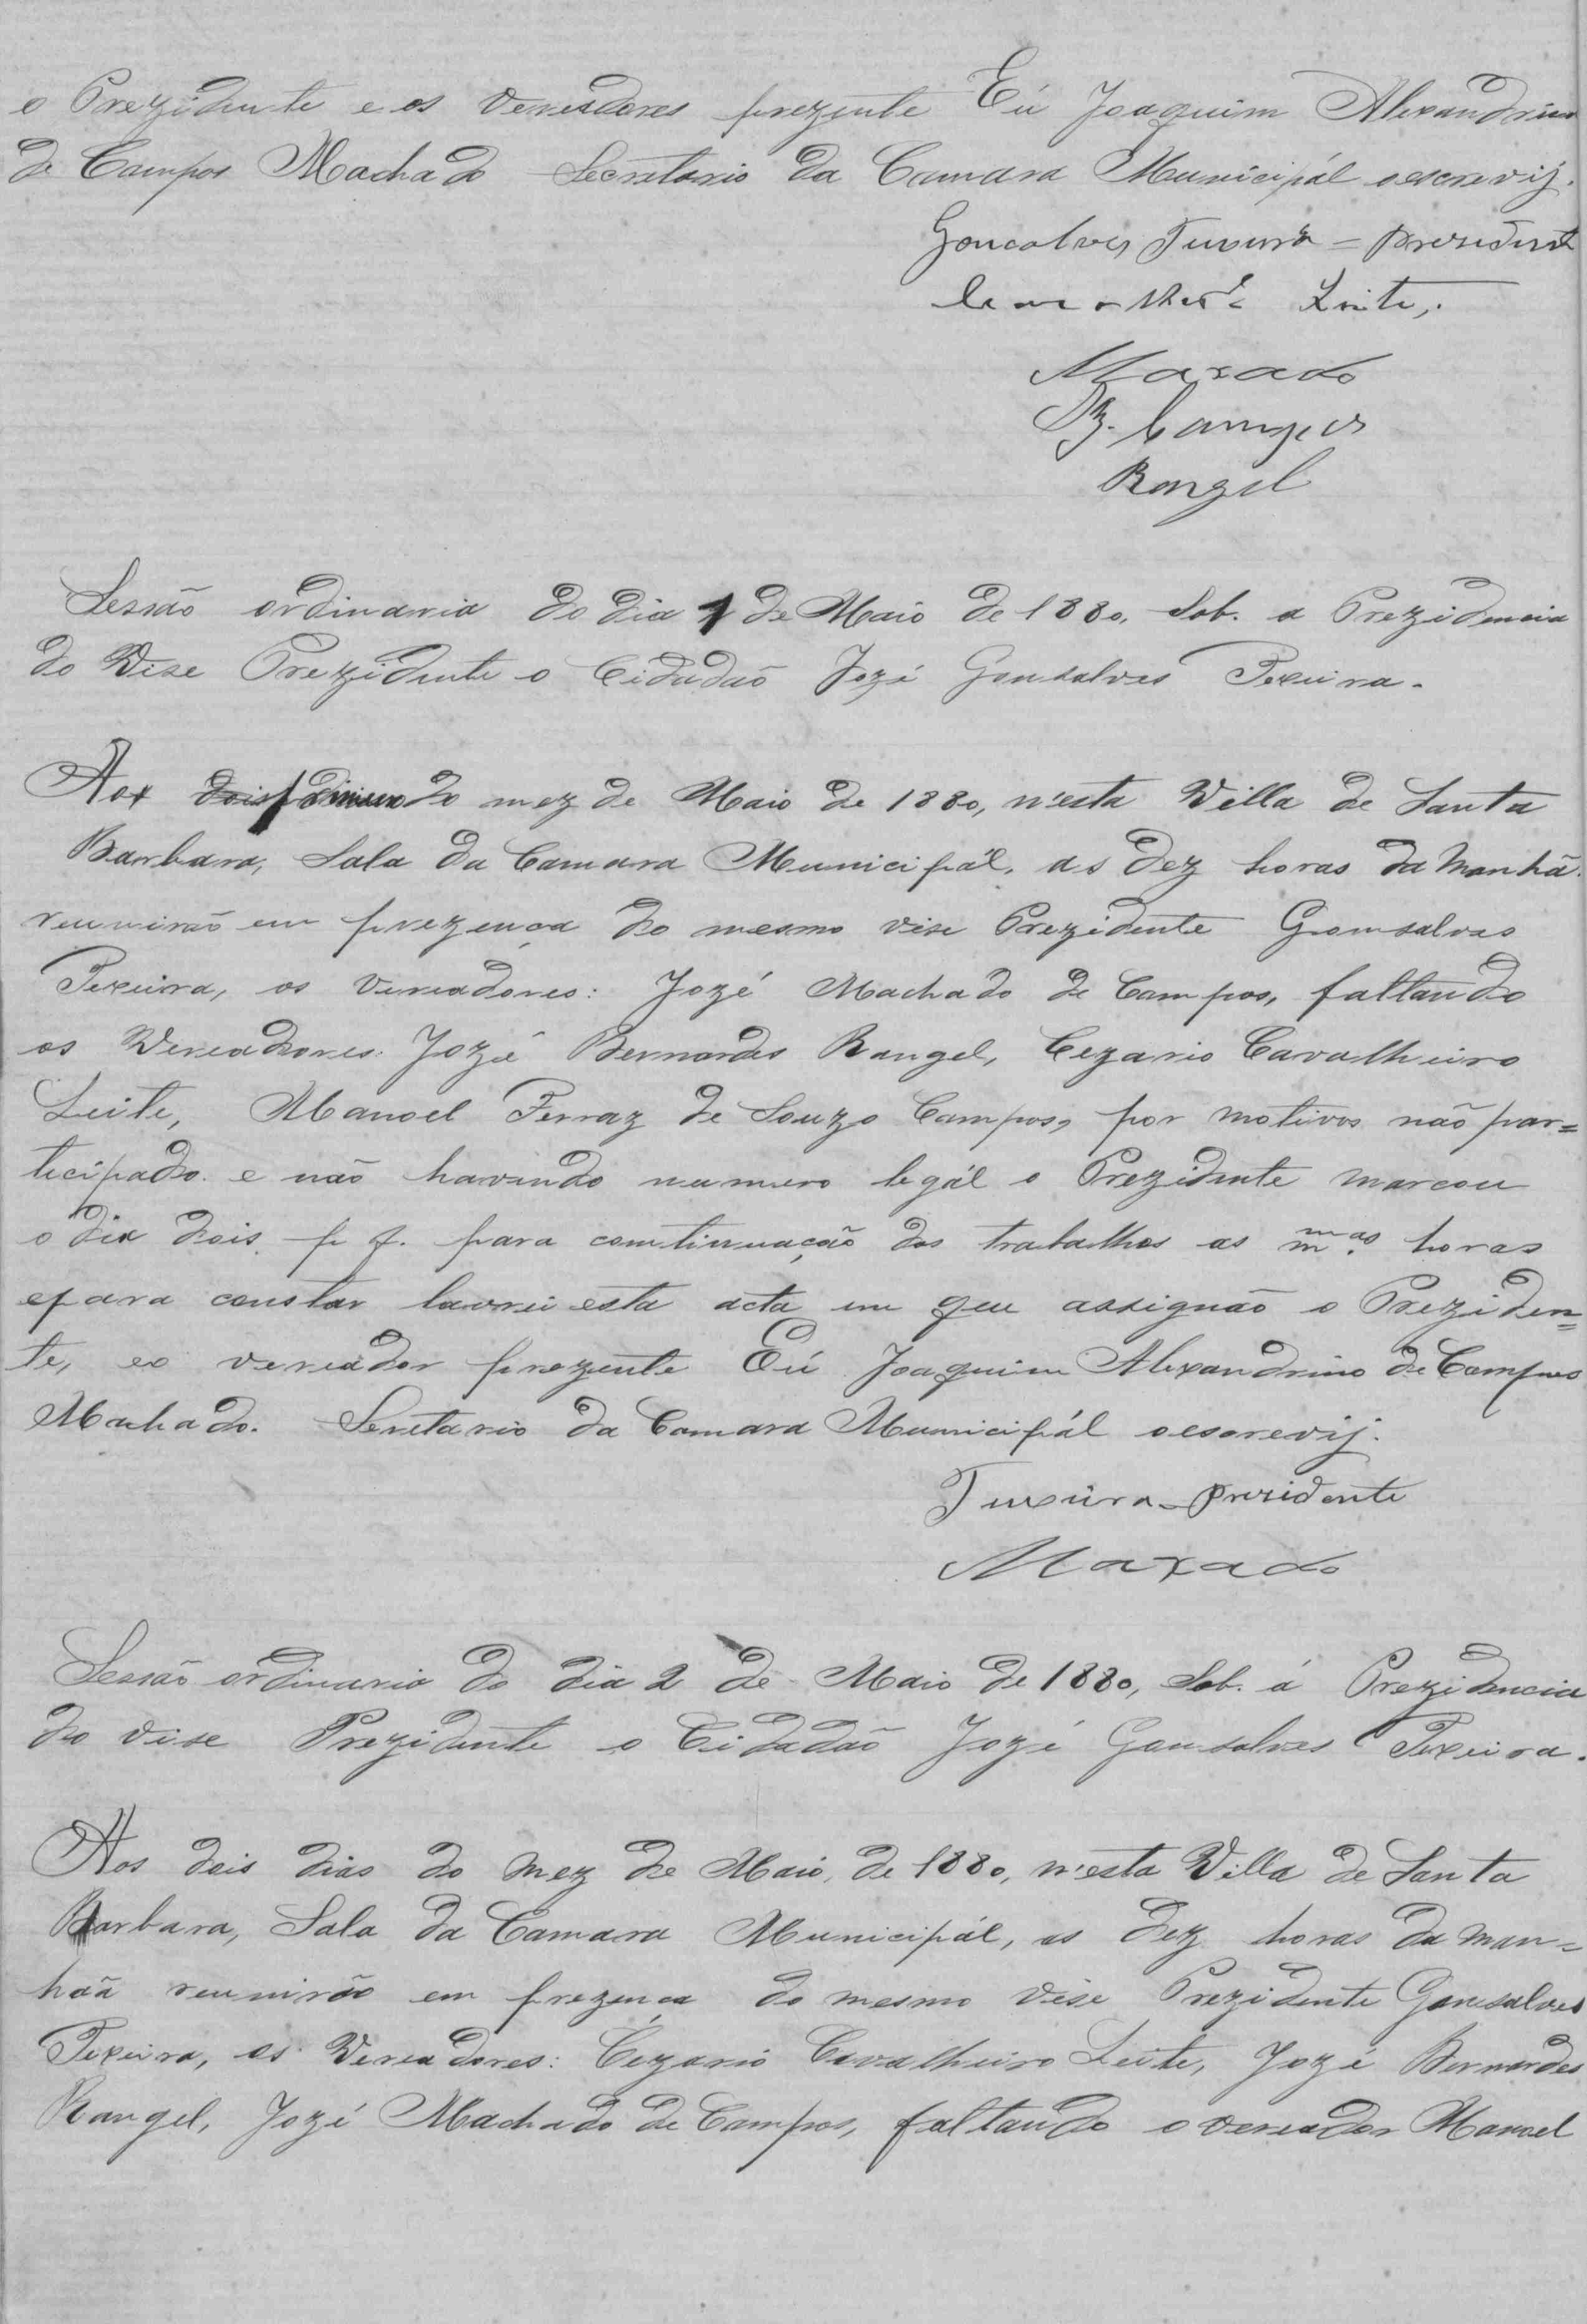 o Prezidente e os Vereadores prezente Eú Joaquim Alexandrino
de Campos Machado Secretario da Camara Municipál o escrevij.
Goncalves Teixeira = prezident
Leite,
Maxado
Fz. Campos
Rangel
Sessão ordinaria do dia 1 de Maio de 1880, Sob. a Prezidencia
do Vise Prezidente o Cidadão Jozé Gonsalves Texeira.
Aos dois primeiro do mez de Maio de 1880, n'esta Villa de Santa
Barbara, Sala da Camara Municipál, as dez horas da manhã.
reunirão em prezença do mesmo vise Prezidente Gomsalves
Texeira, os Vereadores: Jozé Machado de Campos, faltando
os Vereadores: Jozé Bernardes Rangel, Cezario Cavalheiro
Leite, Manoel Ferraz de Souza Campos, por motivos não par=
tecipado. e não havendo numero legál o Prezidente marcou
o dia dois p f. para comtinuação dos trabalhos as m.mas horas
epara constar lavrei esta acta em que assignão o Preziden=
te, eo vereador prezente Eú Joaquim Alexandrino de Campos
Machado. Seretario da Camara Municipál oescrevij.
Teixeira = prezidente
Maxado
Sessão ordinaria do dia 2 de Maio de 1880, Sob. á Prezidencia
do vise Prezidente o Cidadão Jozé Gonsalves Texeira.
Aos dois dias do mez de Maio, de 1880, n'esta Villa de Santa
Barbara, Sala da Camara Municipál, as dez horas da man=
hãa reunirão em prezença do mesmo Vise Prezidente Gonsalves
Texeira, os Vereadores: Cezario Cavalheiro Leite, Jozé Bernardes
Rangel, Jozé Machado de Campos, faltando o vereador Manoel